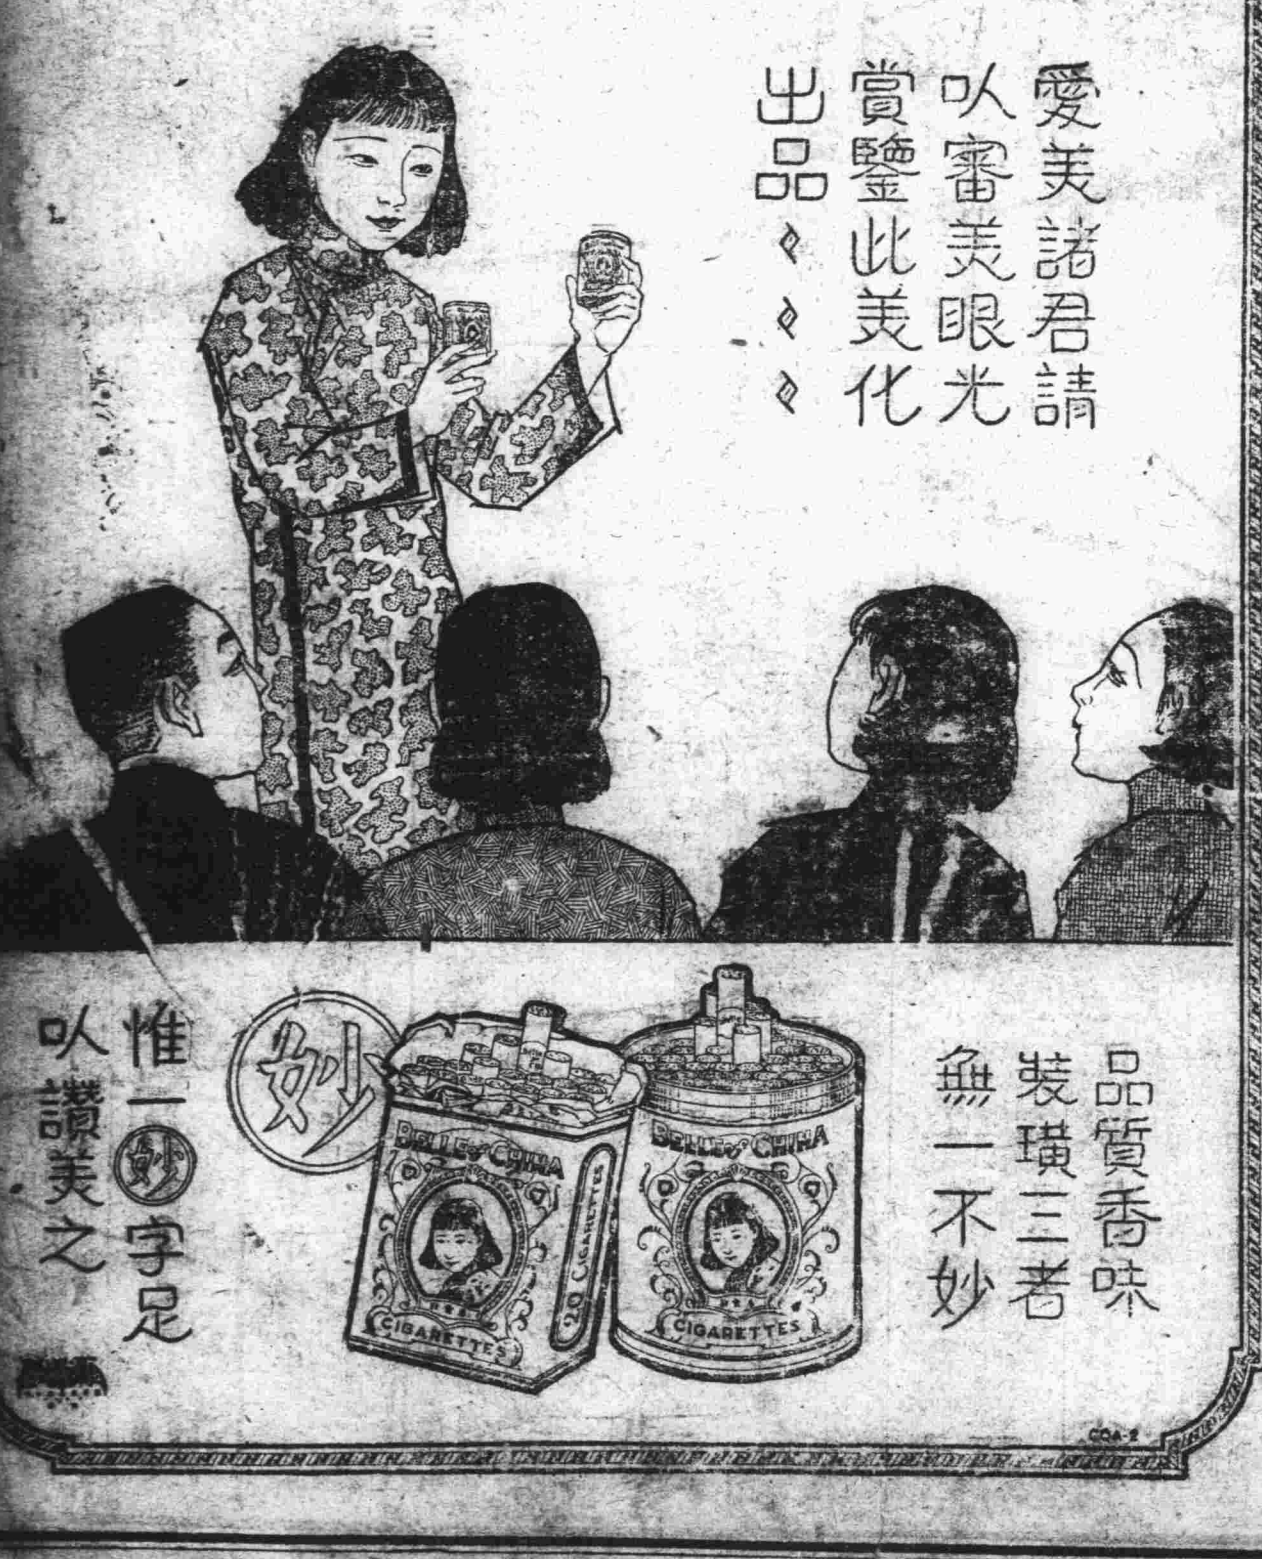 愛美諸君請
以審美眼光
賞鑒此美化
出品
品質香味
裝璜三者
無一不妙
妙
BELLE OF CHINA
CIGARETTES
50 CIGARETTES
BELLE OF CHINA
CIGARETTES
惟一妙字足
以讚美之